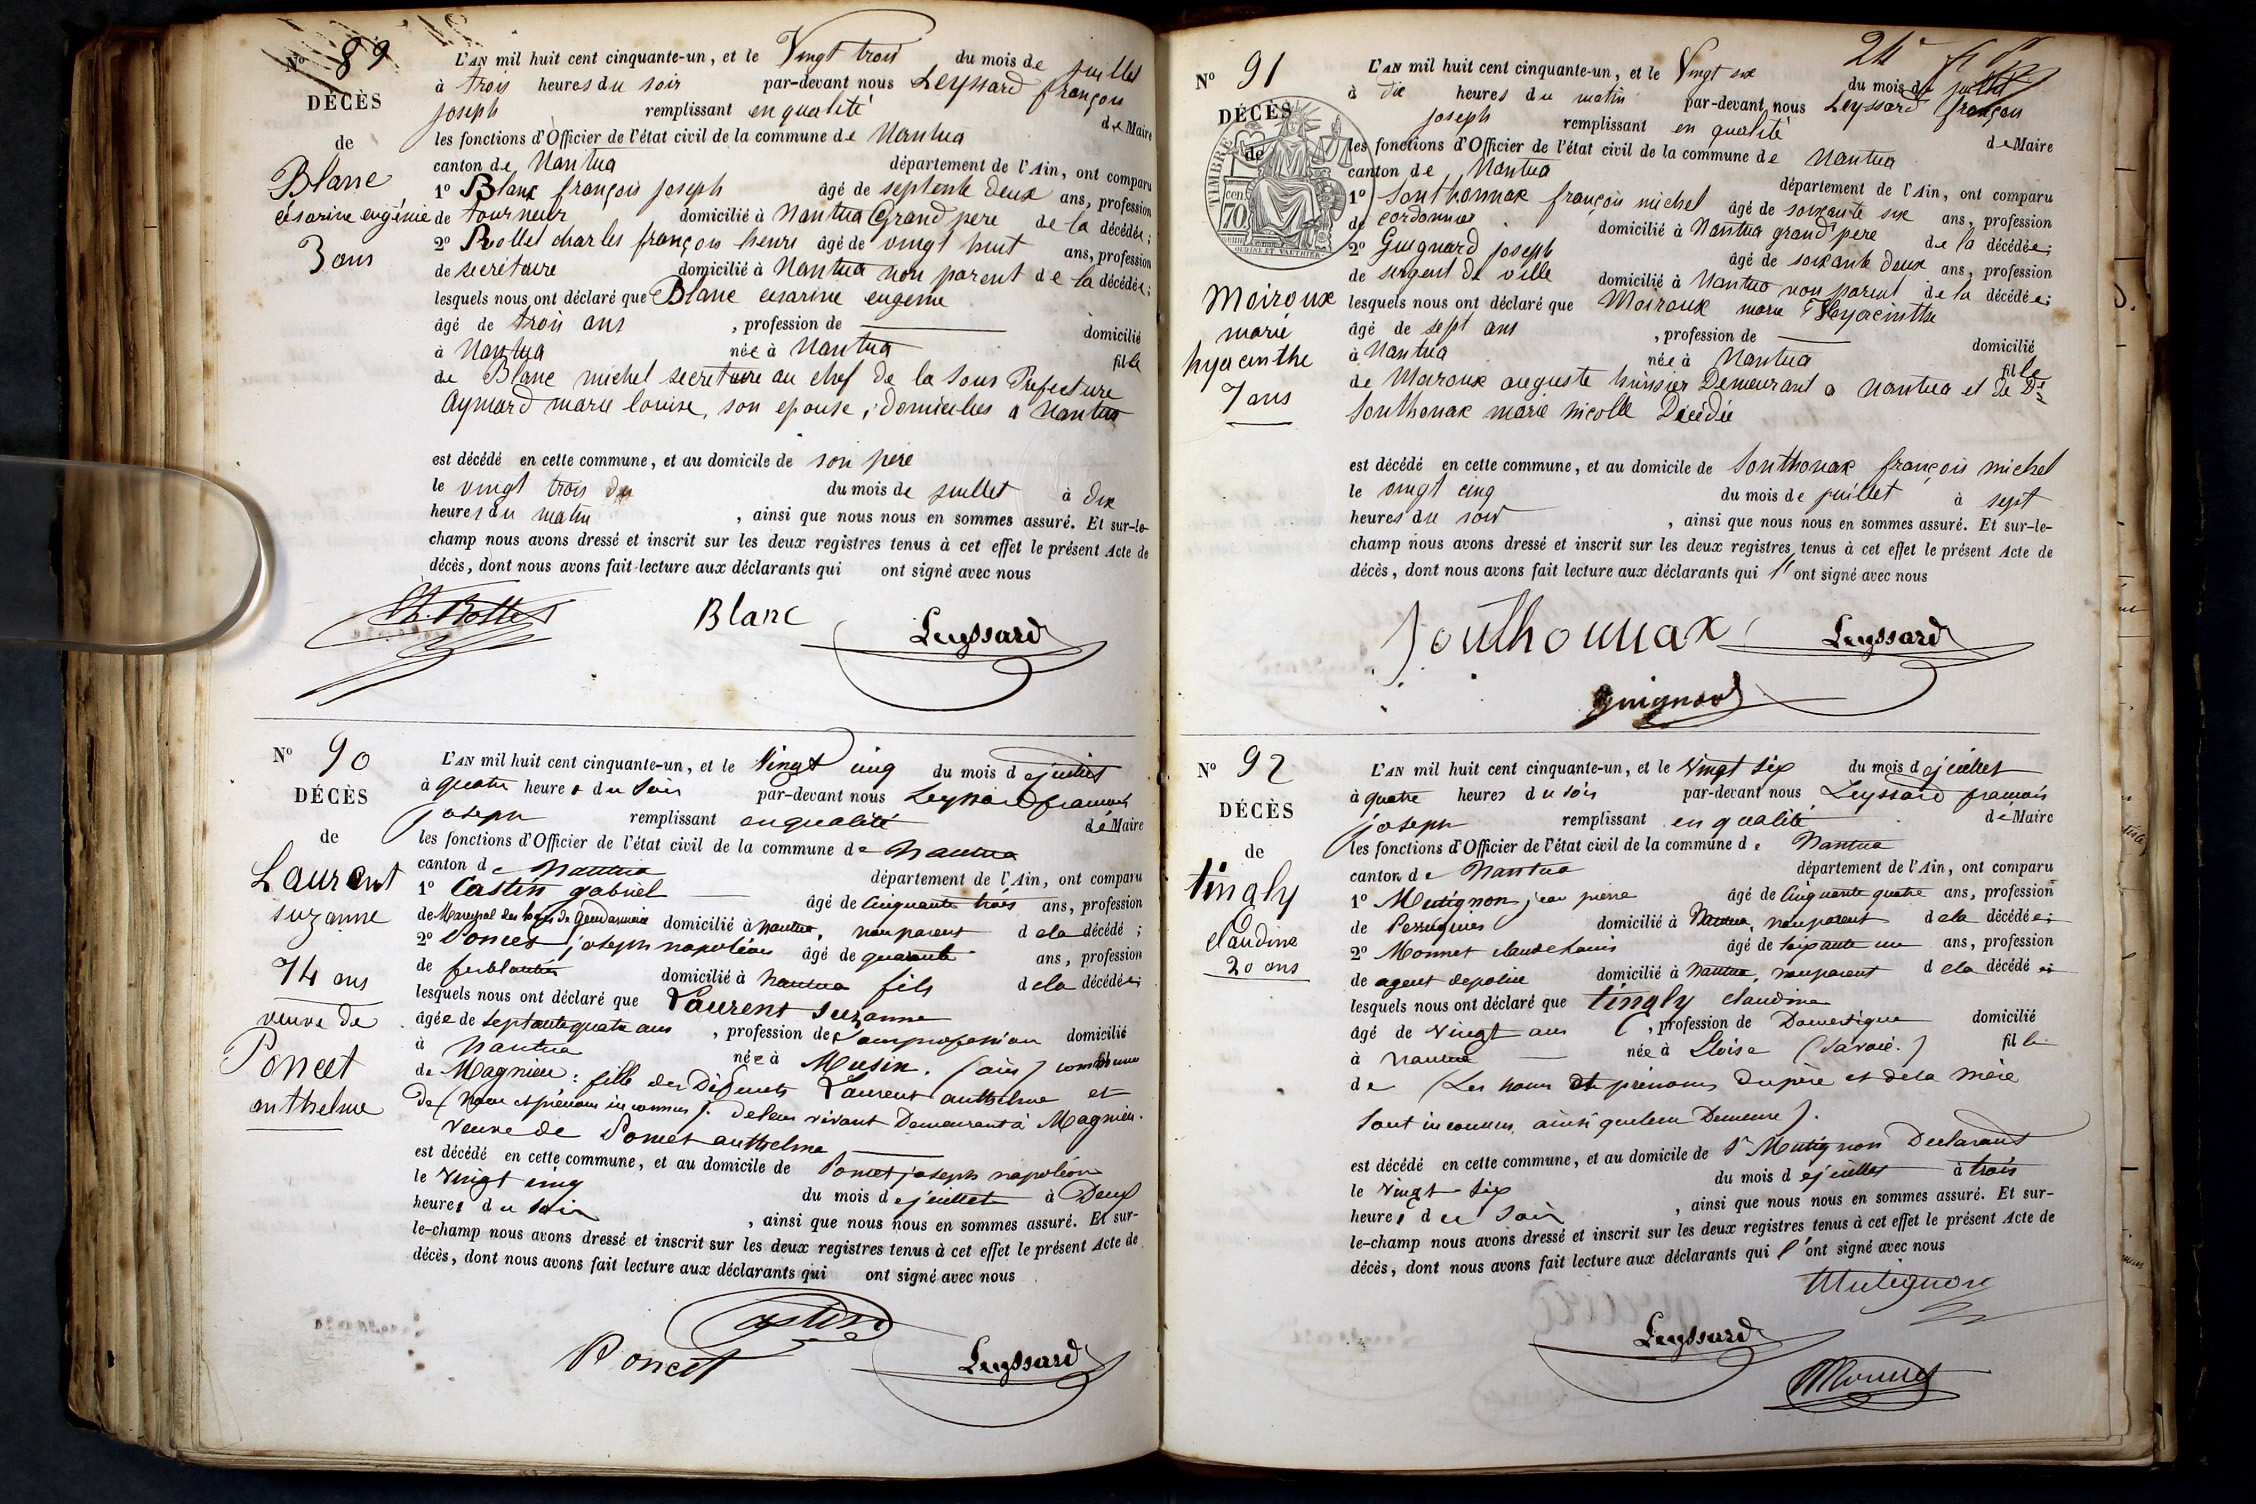 N° 89
DÉCÈS
de
Blanc
césarine eugénie
3 ans
L'AN mil huit cent cinquante-un, et le Vingt trois du mois de juillet
à trois heures du soir par-devant nous Leyssard françois
joseph remplissant en qualité de Maire
les fonctions d'Officier de l'état civil de la commune de Nantua
canton de Nantua département de l'Ain, ont comparu
1° Blanc françois joseph âgé de septente deux ans, profession
de tourneur domicilié à Nantua Grand pere de la décédée;
2° Rollet charles françois henri âgé de vingt huit ans, profession
de secrétaire domicilié à Nantua non parent de la décédée;
lesquels nous ont déclaré que Blanc cesarine eugenie
âgé de trois ans , profession de domicilié
à Nantua née à Nantua fille
de Blanc michel secretaire au chef de la Sous Prefecture
Aymard marie louise, son epouse, domicilies a Nantua
est décédé en cette commune, et au domicile de son pere
le vingt trois du du mois de juillet à dix
heures du matin , ainsi que nous nous en sommes assuré. Et sur-le-
champ nous avons dressé et inscrit sur les deux registres tenus à cet effet le présent Acte de
décès, dont nous avons fait lecture aux déclarants qui ont signé avec nous
Ch. Rollet Blanc Leyssard
N° 90
DÉCÈS
de
Laurent
suzanne
74 ans
veuve de
Poncet
anthelme
L'AN mil huit cent cinquante-un, et le Vingt cinq du mois de juillet
à quatre heures du soir par-devant nous Leyssard françois
joseph remplissant en qualité de Maire
les fonctions d'Officier de l'état civil de la commune de Nantua
canton de Nantua département de l'Ain, ont comparu
1° Castin gabriel âgé de Cinquante trois ans, profession
de Marechal des logis de Gendarmerie domicilié à nantua, non parent de la décédé;
2° Poncet joseph napoléon âgé de quarante ans, profession
de ferblantier domicilié à nantua fils de la décédée;
lesquels nous ont déclaré que Laurent suzanne
âgée de septante quatre ans , profession de sans profession domicilié
à Nantua née à Musin. (ain) commune
de Magnieu: fille des Défunts Laurent anthelme et
de (nom et prénoms inconnus). de leur vivant Demeurant à Magnieu.
Veuve de Poncet anthelme
est décédé en cette commune, et au domicile de Poncet joseph napoléon
le Vingt cinq du mois de juillet à Deux
heures du soir , ainsi que nous nous en sommes assuré. Et sur-
le-champ nous avons dressé et inscrit sur les deux registres tenus à cet effet le présent Acte de
décès, dont nous avons fait lecture aux déclarants qui ont signé avec nous
Castin
Poncet Leyssard
N° 91
DÉCÈS
de
TIMBRE
70
Moiroux
marie
hyacinthe
7 ans
L'AN mil huit cent cinquante-un, et le Vingt six du mois de juillet
à dix heures du matin par-devant nous Leyssard françois
joseph remplissant en qualité de Maire
les fonctions d'Officier de l'état civil de la commune de Nantua
canton de Nantua département de l'Ain, ont comparu
1° Sonthonnax françois michel âgé de soixante six ans, profession
de cordonnier domicilié à Nantua grand pere de la décédée;
2° Guignard joseph âgé de soixante deux ans, profession
de sergent de ville domicilié à Nantua non parent de la décédée;
lesquels nous ont déclaré que Moiroux marie Hyacinthe
âgé de sept ans , profession de domicilié
à Nantua née à Nantua fille
de Moiroux auguste huissier Demeurant a Nantua et de De
Sonthonax marie nicolle Décédée
est décédé en cette commune, et au domicile de Sonthonax françois michel
le vingt cinq du mois de juillet à sept
heures du soir , ainsi que nous nous en sommes assuré. Et sur-le-
champ nous avons dressé et inscrit sur les deux registres tenus à cet effet le présent Acte de
décès, dont nous avons fait lecture aux déclarants qui l' ont signé avec nous
Sonthonnax Leyssard
guignard
N° 92
DÉCÈS
de
tingly
Claudine
20 ans
L'AN mil huit cent cinquante-un, et le Vingt six du mois de juillet
à quatre heures du soir par-devant nous Leyssard françois
joseph remplissant en qualité de Maire
les fonctions d'Officier de l'état civil de la commune de Nantua
canton de Nantua département de l'Ain, ont comparu
1° Mutignon jean pierre âgé de Cinquante quatre ans, profession
de Perruquier domicilié à Nantua, non parent de la décédée;
2° Monnet claude Louis âgé de soixante un ans, profession
de agent de police domicilié à Nantua, non parent de la décédée;
lesquels nous ont déclaré que tingly claudine
âgé de Vingt ans , profession de Domestique domicilié
à nantua née à Eloise (Savoie.) fille
de (Les noms et prénoms du père et de la mère
sont inconnus, ainsi que leur Demeure).
est décédé en cette commune, et au domicile de Sr Mutignon Declarant
le Vingt six du mois de juillet à trois
heures du soir , ainsi que nous nous en sommes assuré. Et sur-
le-champ nous avons dressé et inscrit sur les deux registres tenus à cet effet le présent Acte de
décès, dont nous avons fait lecture aux déclarants qui l' ont signé avec nous
Mutignon
Leyssard
Monnet